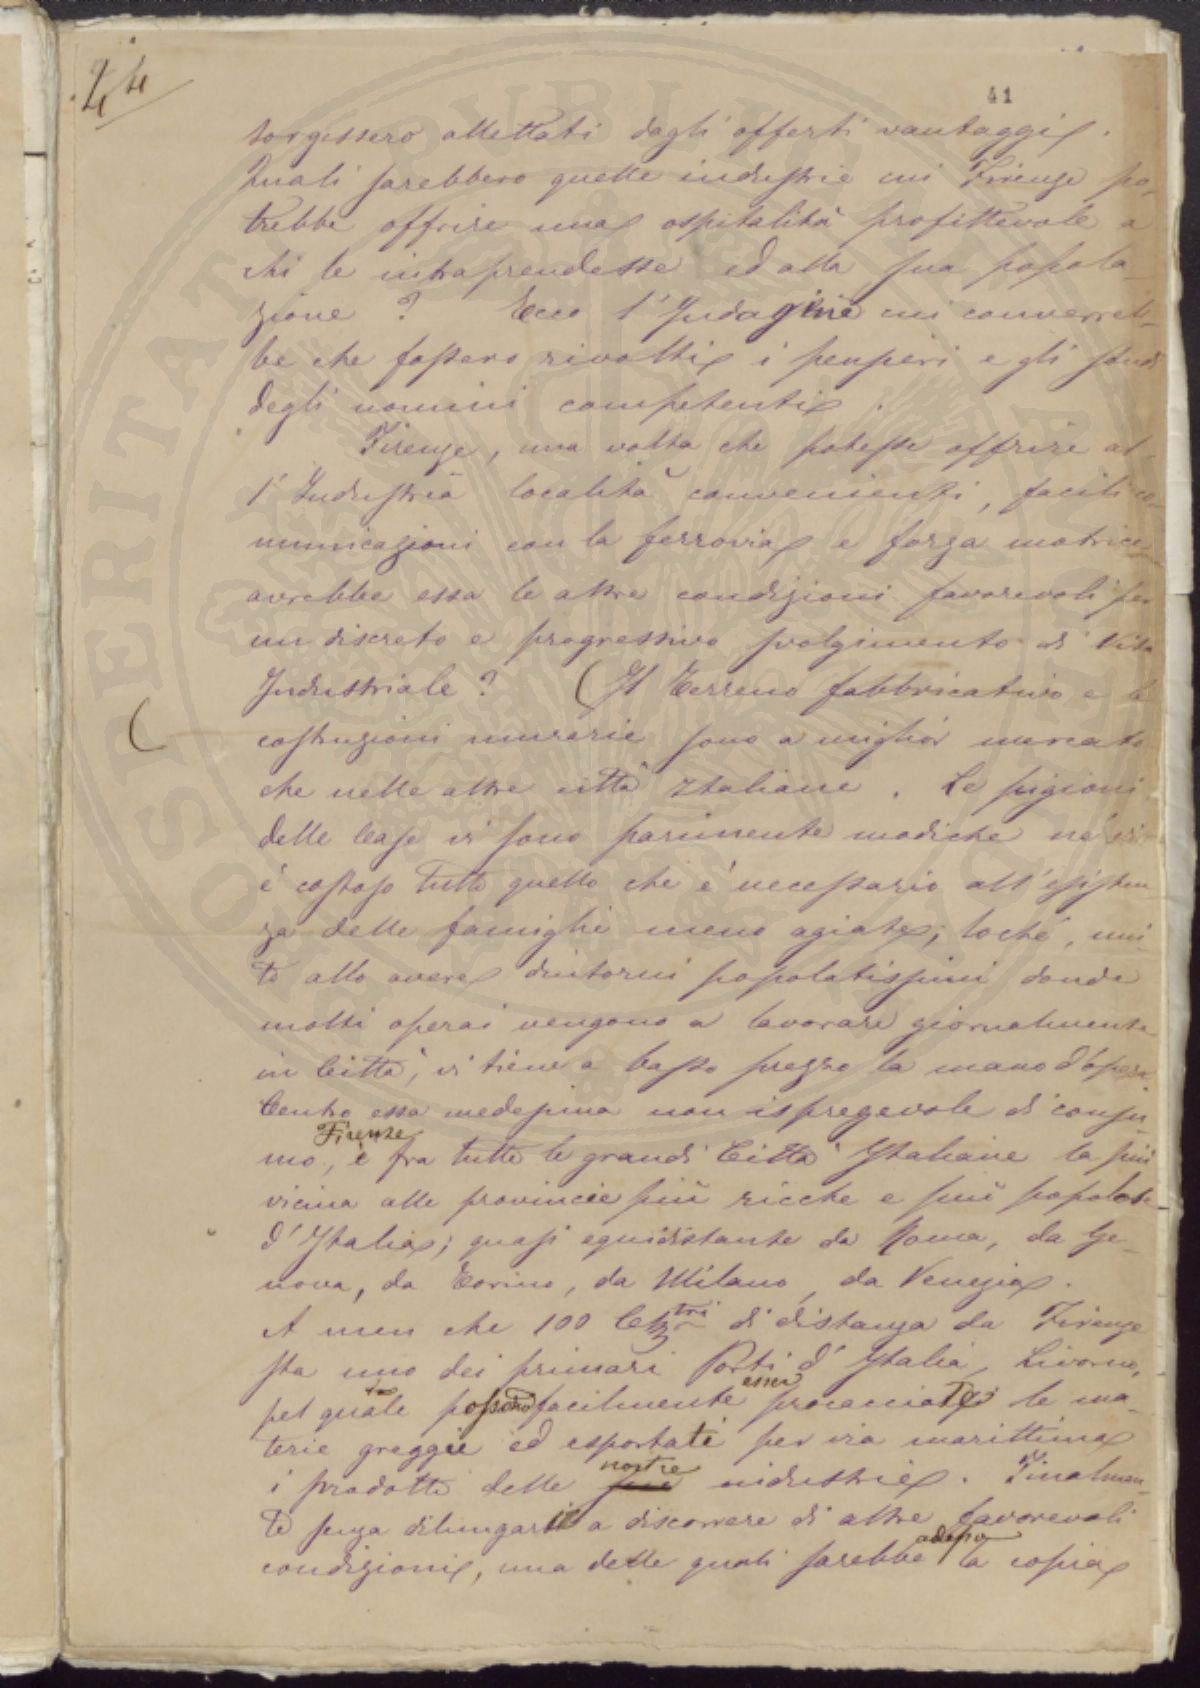 44
41
sorgessero allettati dagli offerti vantaggi.
Quali sarebbero quelle industrie cui Firenze po-
trebbe offrire una ospitalità profittevole a
chi le intraprendesse ed alla sua popola-
zione? Ecco l'Indagine cui converreb-
be che fossero rivolti i pensieri e gli studi
degli uomini competenti.
Firenze, una volta che potesse offrire al-
l'Industria località convenienti, facili co-
municazioni con la ferrovia e forza motrice
avrebbe essa le altre condizioni favorevoli per
un discreto e progressivo svolgimento di Vita
Industriale? (Il Terreno fabbricativo e le
costruzioni murarie sono a miglior mercato
che nelle altre città Italiane. Le pigioni
delle Case vi sono parimente modiche né vi
è costoso tutto quello che è necessario all'esisten-
za delle famiglie meno agiate; locché, uni-
to allo avere dintorni popolatissimi donde
molti operai vengono a lavorare giornalmente
in Città, vi tiene a basso prezzo la mano d'opera.
Centro essa medesima non ispregevole di consu-
Firenze
mo, è fra tutte le grandi Città Italiane la più
vicina alle provincie più ricche e più popolate
d'Italia; quasi equidistante da Roma, da Ge-
nova, da Torino, da Milano, da Venezia.
A men che 100 di distanza da Firenze
sta uno dei primari Porti d'Italia, Livorno,
esser
pel quale possono facilmente procacciate le ma-
terie greggie ed esportati per via marittima
nostre
i prodotti delle sue industrie. Finalmen-
te senza dilungarsi a discorrere di altre favorevoli
adesso
condizioni, una delle quali sarebbe la copia